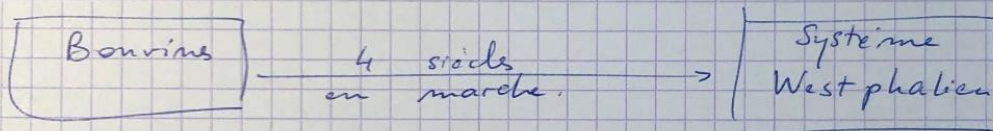 Bouvines
4 siècles
en marche.
Système
Westphalien